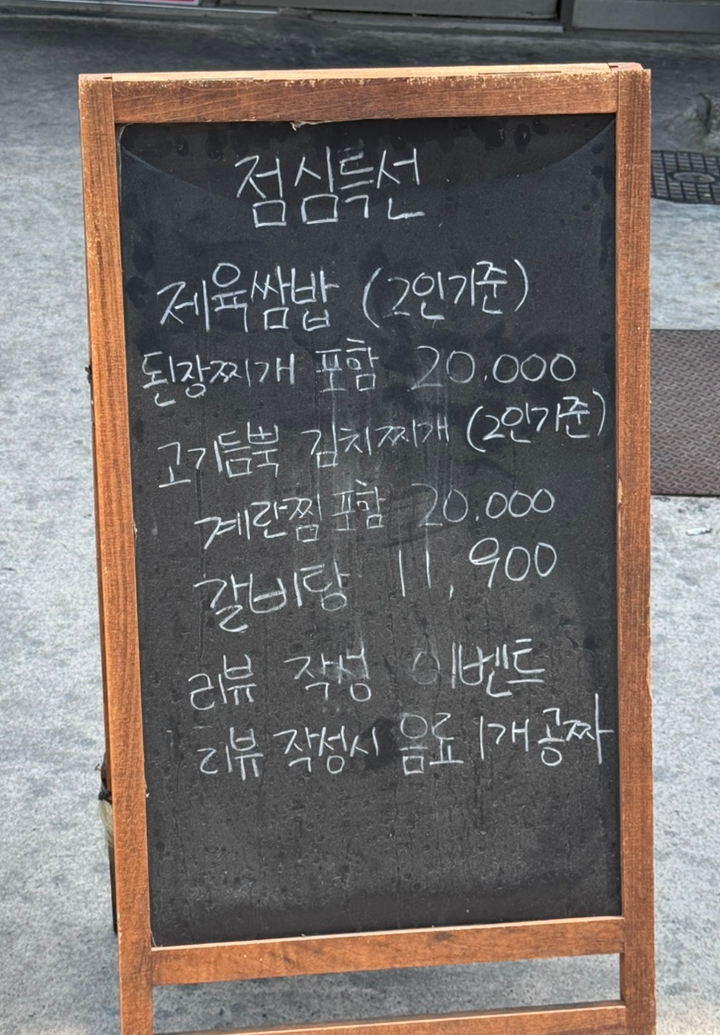 점심특선
제육쌈밥 (2인기준)
된장찌개 포함 20.000
고기듬뿍 김치찌개 (2인기준)
계란찜 포함 20.000
갈비탕 11,900
리뷰 작성 이벤트
리뷰 작성시 음료 1개 공짜